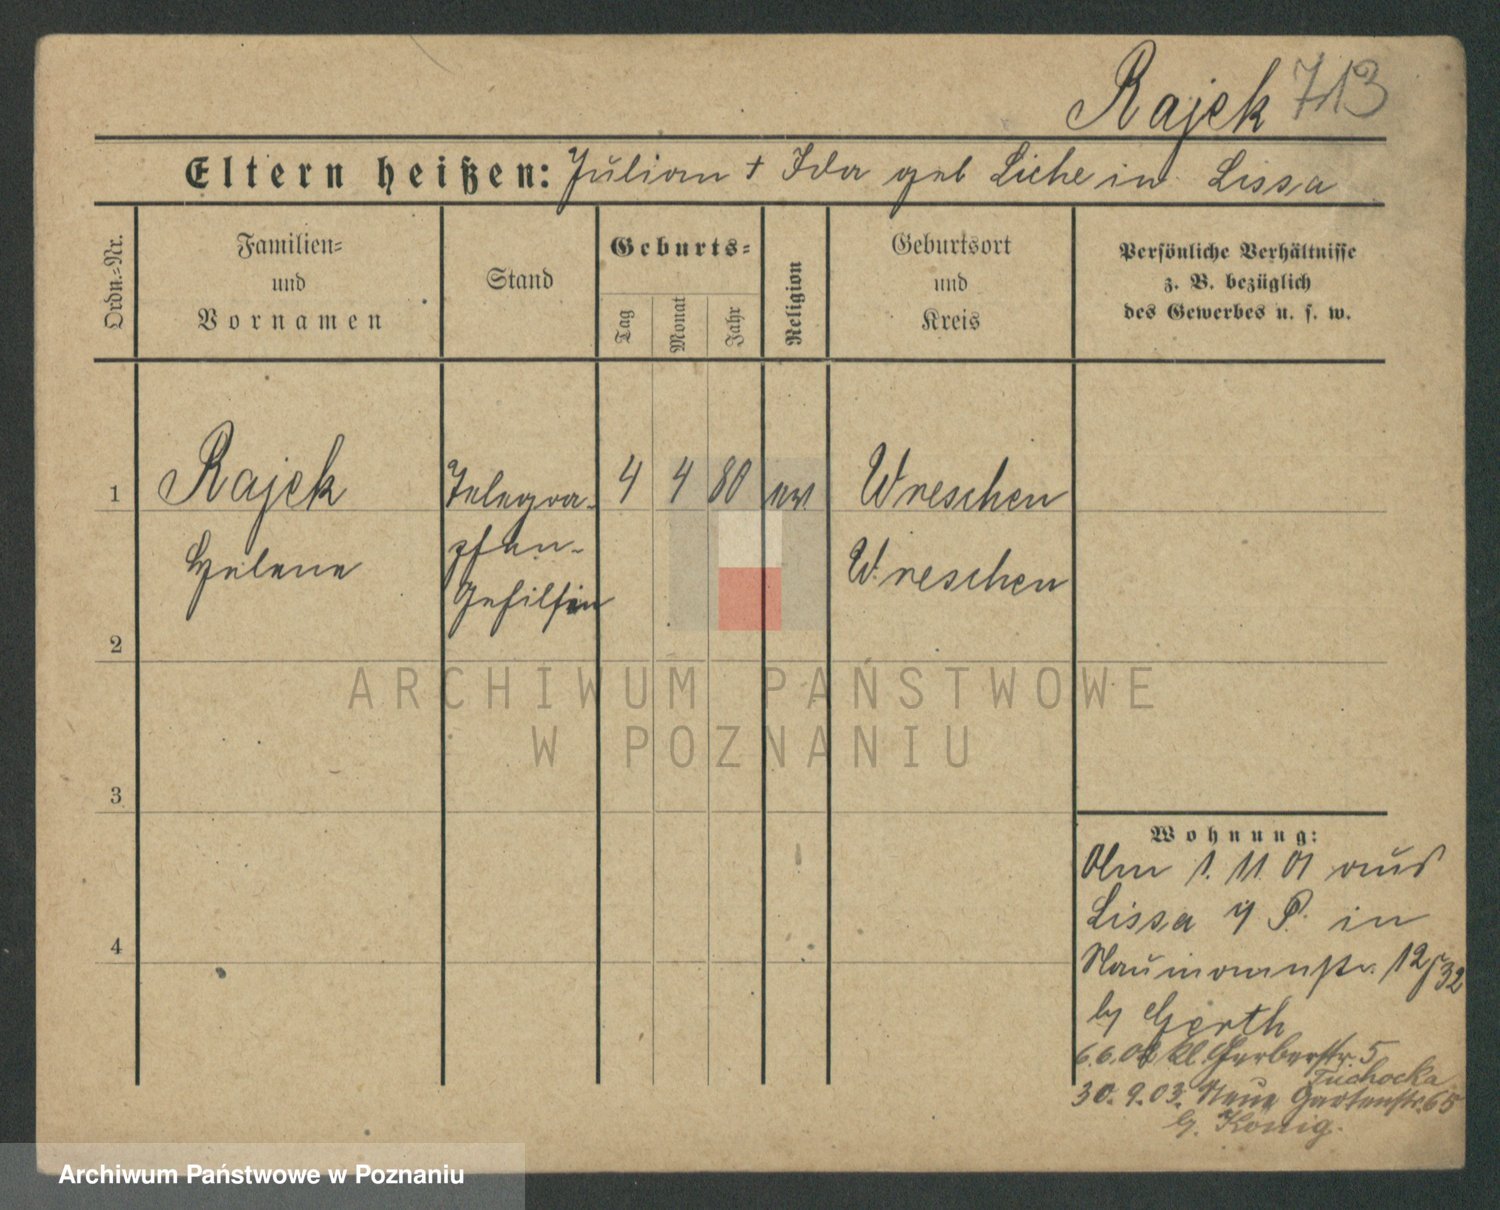 Rajek 713
Eltern heißen: Julian + Ida geb Liche in Lissa
Ordn.-Nr.
Familien-
und
Vornamen
Stand
Geburts-
Tag
Monat
Jahr
Religion
Geburtsort
und
Kreis
Persönliche Verhältnisse
z. B. bezüglich
des Gewerbes u. s. w.
1
Rajek
Telegra-
4
4
80
ev
Wreschen
Helene
phen-
Wreschen
Gehilfin
2
ARCHIWUM PAŃSTWOWE
W POZNANIU
3
Wohnung:
Am 1. 11. 01 aus
Lissa i/ P. in
4
Naumannstr. 12/32
by Gerth
6.6.02 Kl. Gerberstr. 5
Tuchocka
30. 9. 03. Neue Gartenstr. 65
b. König.
Archiwum Państwowe w Poznaniu